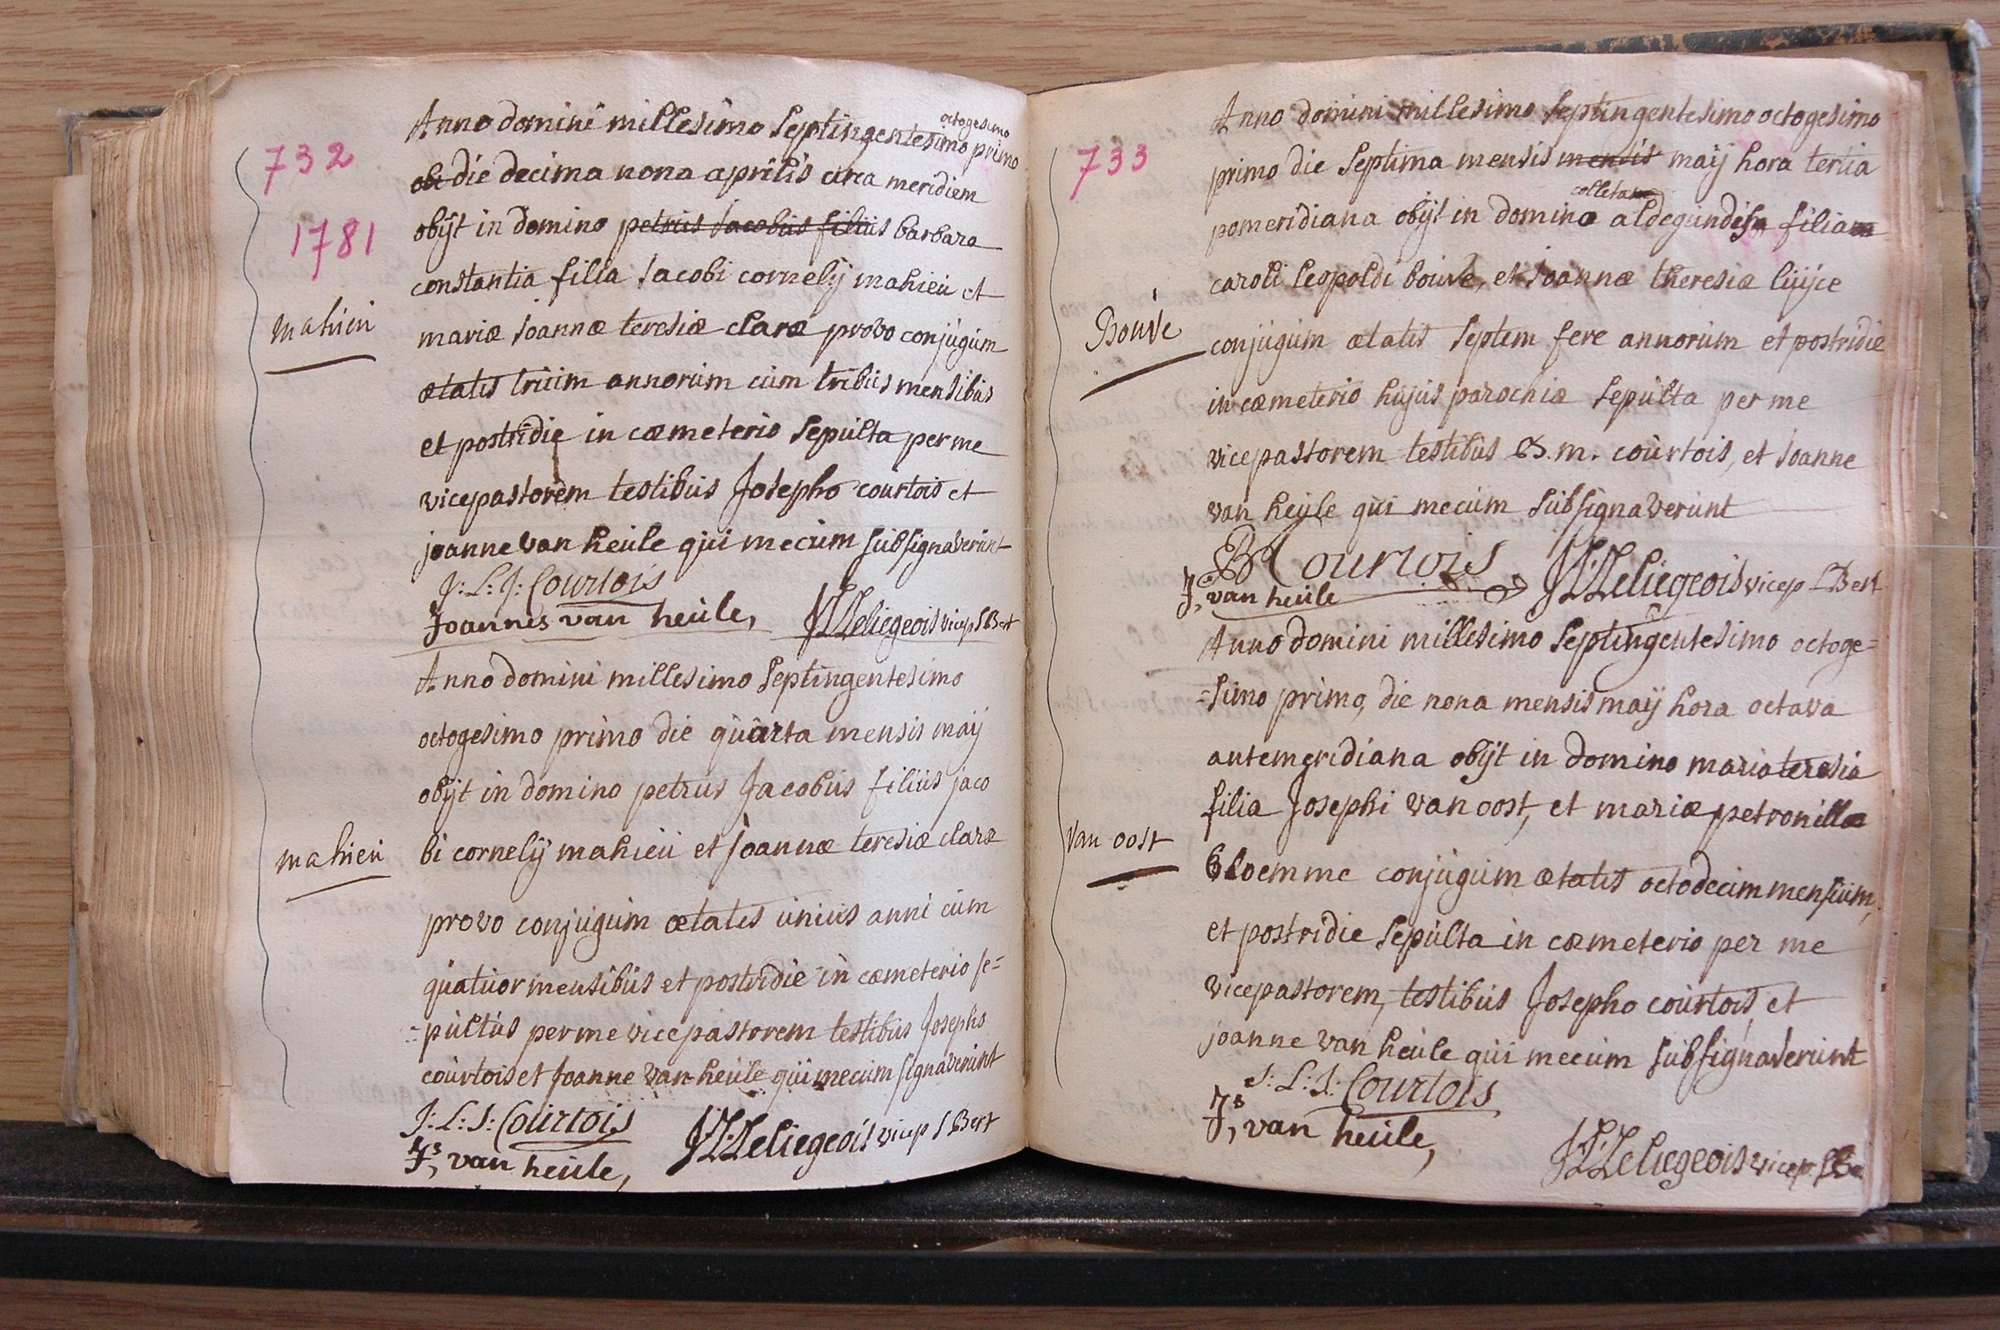 732
1781
Anno domini millesimo septingentesimo octogesimo primo
obi die decima nona aprilis circa meridiem
obijt in domino petrus Jacobus filius barbara
constantia filia Jacobi cornelij mahieu et
mariæ Joannæ teresiæ claræ provo conjugum
mahieu
ætatis trium annorum cum tribus mensibus
et postridie in cæmeterio sepulta per me
vicepastorem testibus Josepho courtois et
joanne van heule qui mecum subsignaverunt
J: L: J: Courtois
Joannes van heule,
Leliegeois vicep S Bert
Anno domini millesimo septingentesimo
octogesimo primo die quarta mensis maij
obijt in domino petrus Jacobus filius jaco
bi cornelij mahieu et Joannæ teresiæ claræ
mahieu
provo conjugum ætatis unius anni cum
quatuor mensibus et postridie in cæmeterio se=
=pultus per me vicepastorem testibus Josepho
courtois et Joanne van heule qui mecum signaverunt
J: L: J: Courtois
Js, van heule,
Leliegeois vicep S Bert
733
Anno domini millesimo septingentesimo octogesimo
primo die septima mensis mensis maij hora tertia
pomeridiana obijt in domino colleta aldegundis filia
caroli leopoldi bouve, et Joannæ theresiæ luijce
Bouve
conjugum ætatis septem fere annorum et postridie
in cæmeterio hujus parochiæ sepulta per me
vicepastorem testibus B. m. courtois, et Joanne
van heule qui mecum subsignaverunt
Courtois
Js, van heule
Leliegeois vicep S Bert
Anno domini millesimo septingentesimo octoge=
=simo primo, die nona mensis maij hora octava
antemeridiana obijt in domino maria teresia
filia Josephi van oost, et mariæ petronillæ
van oost
bloemme conjugum ætatis octodecim mensium,
et postridie sepulta in cæmeterio per me
vicepastorem, testibus Josepho courtois et
joanne van heule qui mecum subsignaverunt
J: L: J: Courtois
Js, van heule,
Leliegeois vicep. S Be